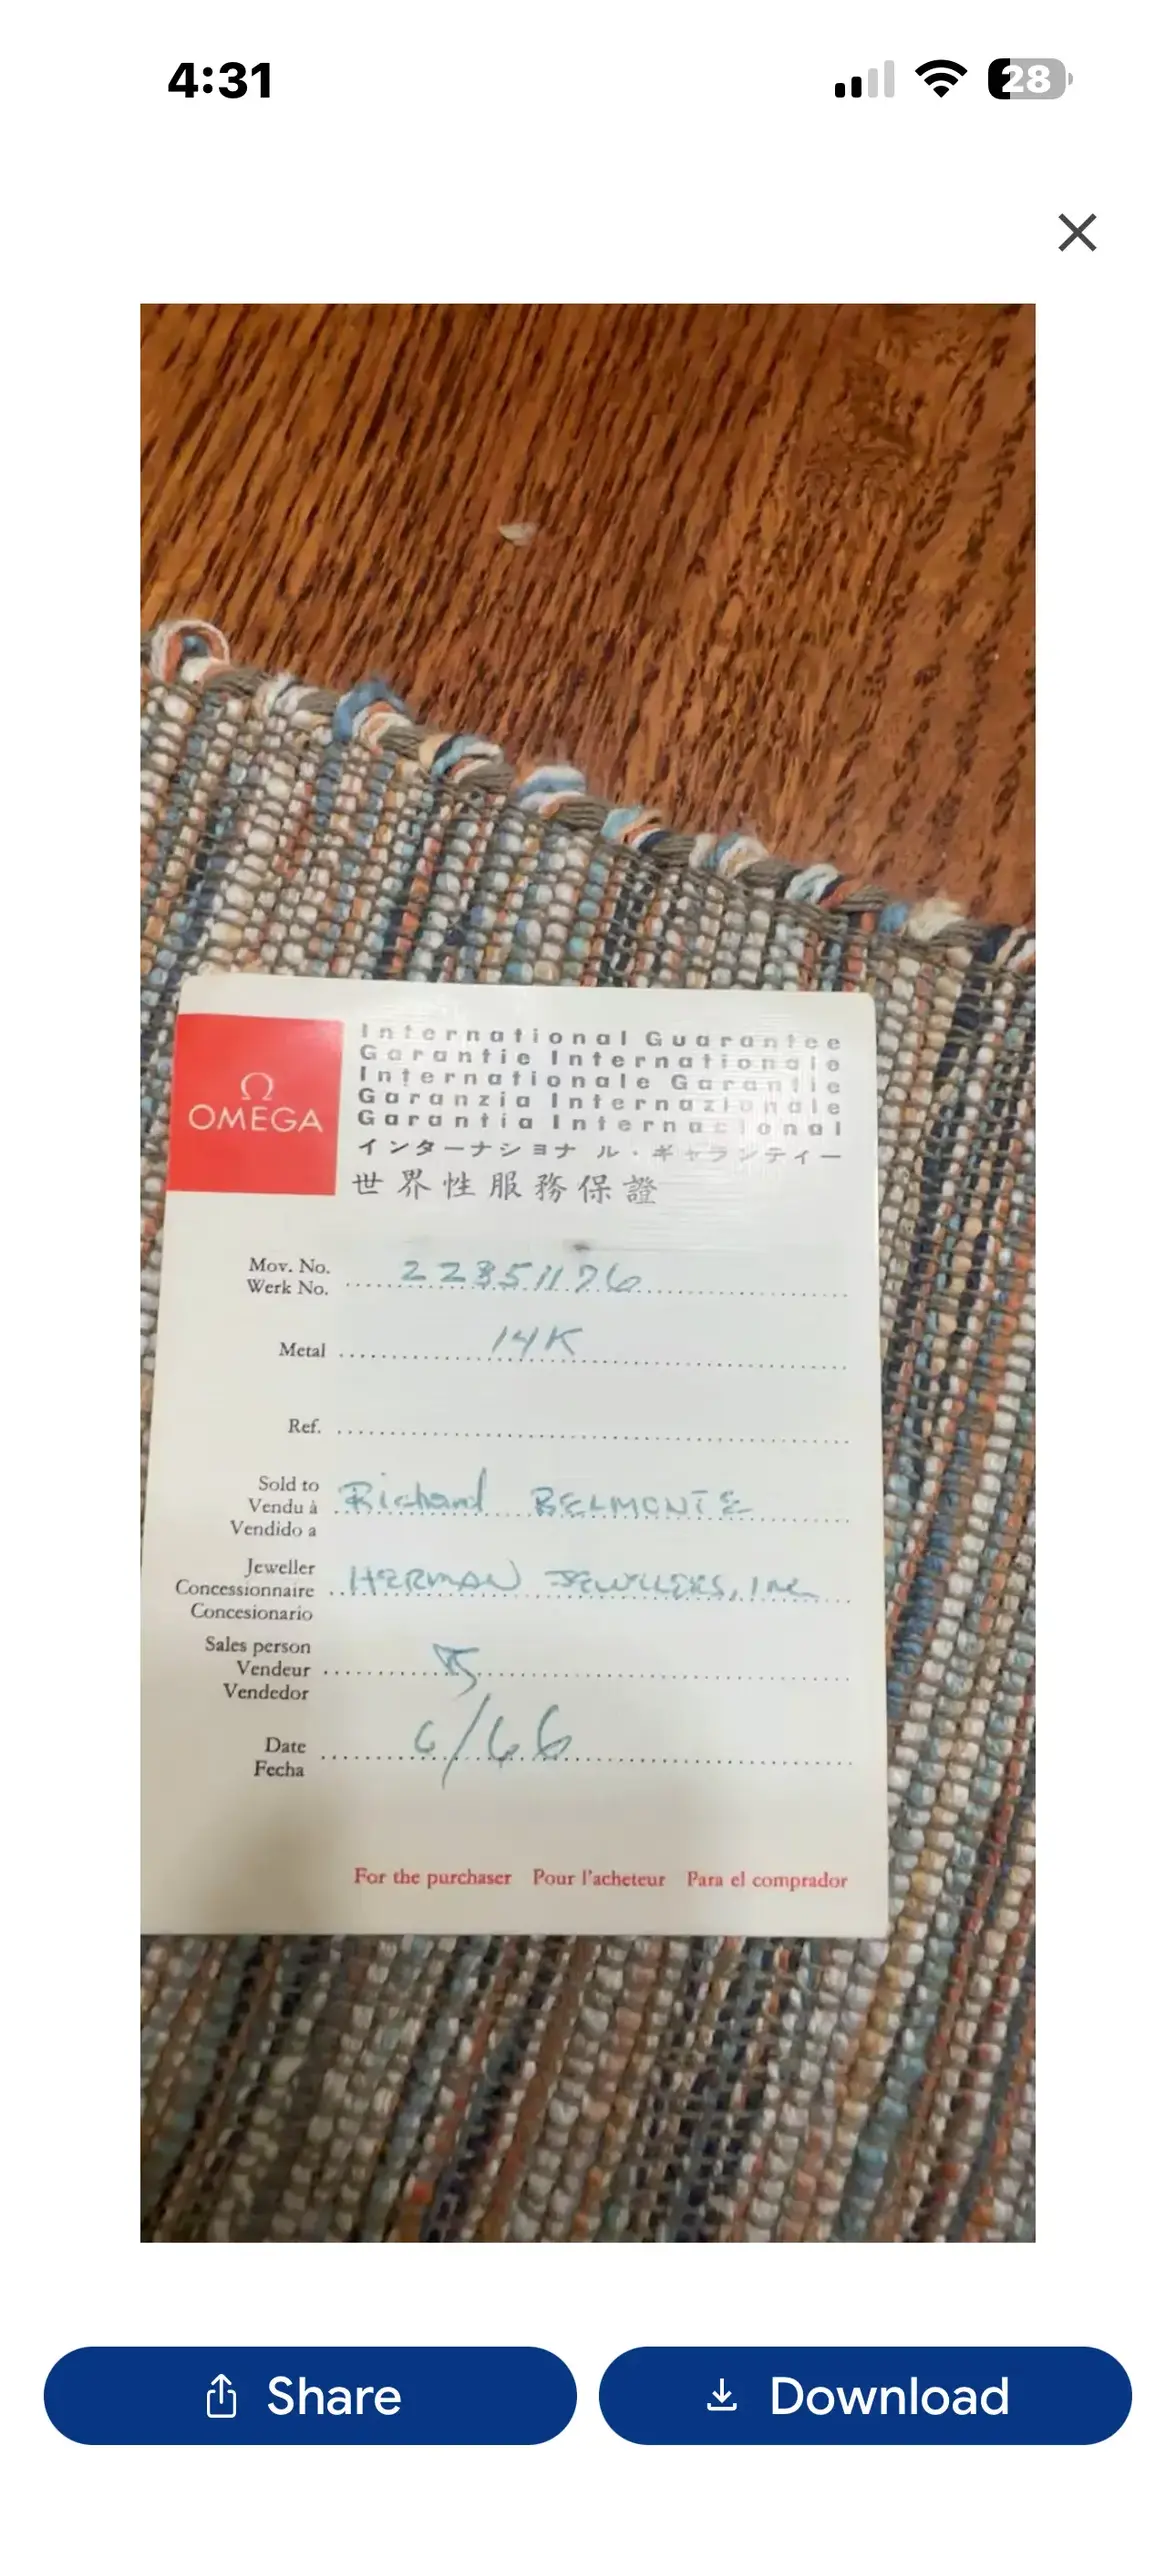 4:31
28
International Guarantee
Garantie Internationale
Internationale Garantie
Garanzia Internazionale
Garantia Internacional
インターナショナル・ギャランティー
世界性服務保證
Ω
OMEGA
Mov. No.
Werk No. 22351176
Metal 14K
Ref.
Sold to
Vendu à Richard BELMONTE
Vendido a
Jeweller
Concessionnaire HERMAN JEWLLERS, Inc
Concesionario
Sales person
Vendeur
Vendedor
Date 6/66
Fecha
For the purchaser Pour l'acheteur Para el comprador
Share
Download